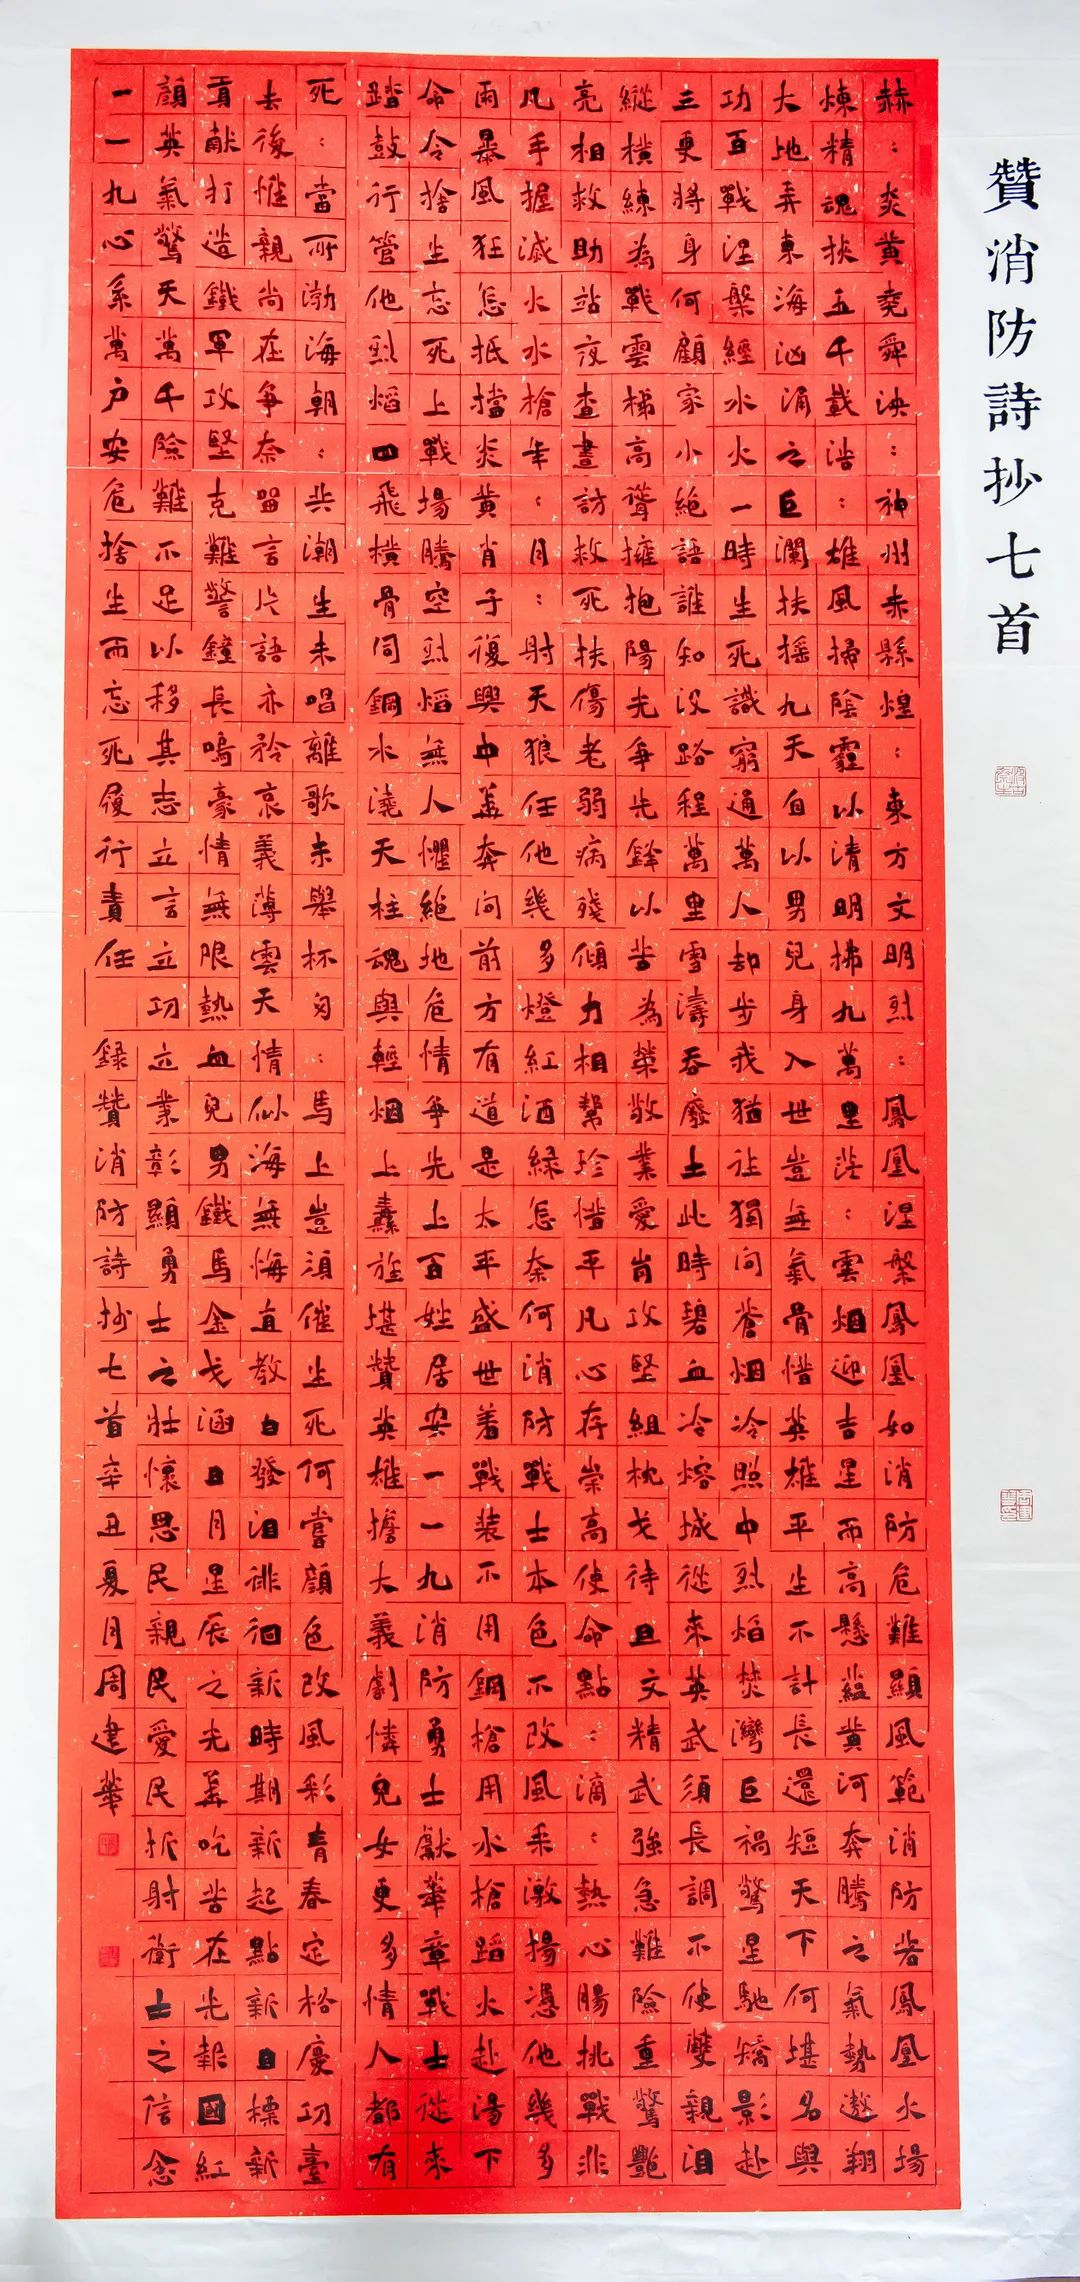 贊消防詩抄七首
赫：炎黃堯舜泱：神州赤縣煌：東方文明烈：鳳凰涅槃鳳凰如消防危難顯風範消防若鳳凰火場
煉精魂挾五千載浩：雄風掃陰霾以清明拂九萬里茫：雲烟迎吉星而高懸蘊黃河奔騰之氣勢遨翔
大地弄東海洶涌之巨瀾扶摇九天自以男兒身入世豈無氣骨惜英雄平生不計長還短天下何堪名與
功百戰涅槃經水火一時生死識窮通萬人却步我猶往獨向蒼烟冷照中烈焰焚灣巨禍驚星馳矯影赴
三更將身何顧家小絕語誰知没路程萬里雪濤吞廢土此時碧血冷熔城從來英武須長調不使雙親泪
縱橫練為戰雲梯高聳擁抱陽光爭先鋒以苦為榮敬業愛崗攻堅組枕戈待旦文精武強急難險重驚艷
亮相救助站夜查晝訪救死扶傷老弱病殘傾力相幫珍惜平凡心存崇高使命點：滴：熱心腸挑戰非
凡手握滅火水槍年：月：射天狼任他幾多燈紅酒綠怎奈何消防戰士本色不改風采激揚憑他幾多
雨暴風狂怎抵擋炎黃肖子復興中華奔向前方有道是太平盛世着戰装不用鋼槍用水槍蹈火赴湯下
命令捨生忘死上戰場騰空烈焰無人懼絕地危情爭先上百姓居安一一九消防勇士獻華章戰士從來
踏鼓行管他烈焰四飛橫骨同鋼水澆天柱魂與輕烟上纛旌堪贊英雄擔大義劇憐兒女更多情人都有
死：當所渤海朝：共潮生未唱離歌未舉杯匆：馬上豈須催生死何嘗顏色改風彩青春定格慶功臺
去後惟親尚在爭奈留言片語亦矜哀義薄雲天情似海無悔直教白發泪徘徊新時期新起點新目標新
貢獻打造鐵軍攻堅克難警鐘長鳴豪情無限熱血兒男鐵馬金戈涵日月星辰之光華吃苦在先報國紅
顏英氣驚天萬千險難不足以移其志立言立功立業彰顯勇士之壯懷思民親民愛民折射衛士之信念
一一九心系萬户安危捨生而忘死履行責任 錄贊消防詩抄七首辛丑夏月周建華